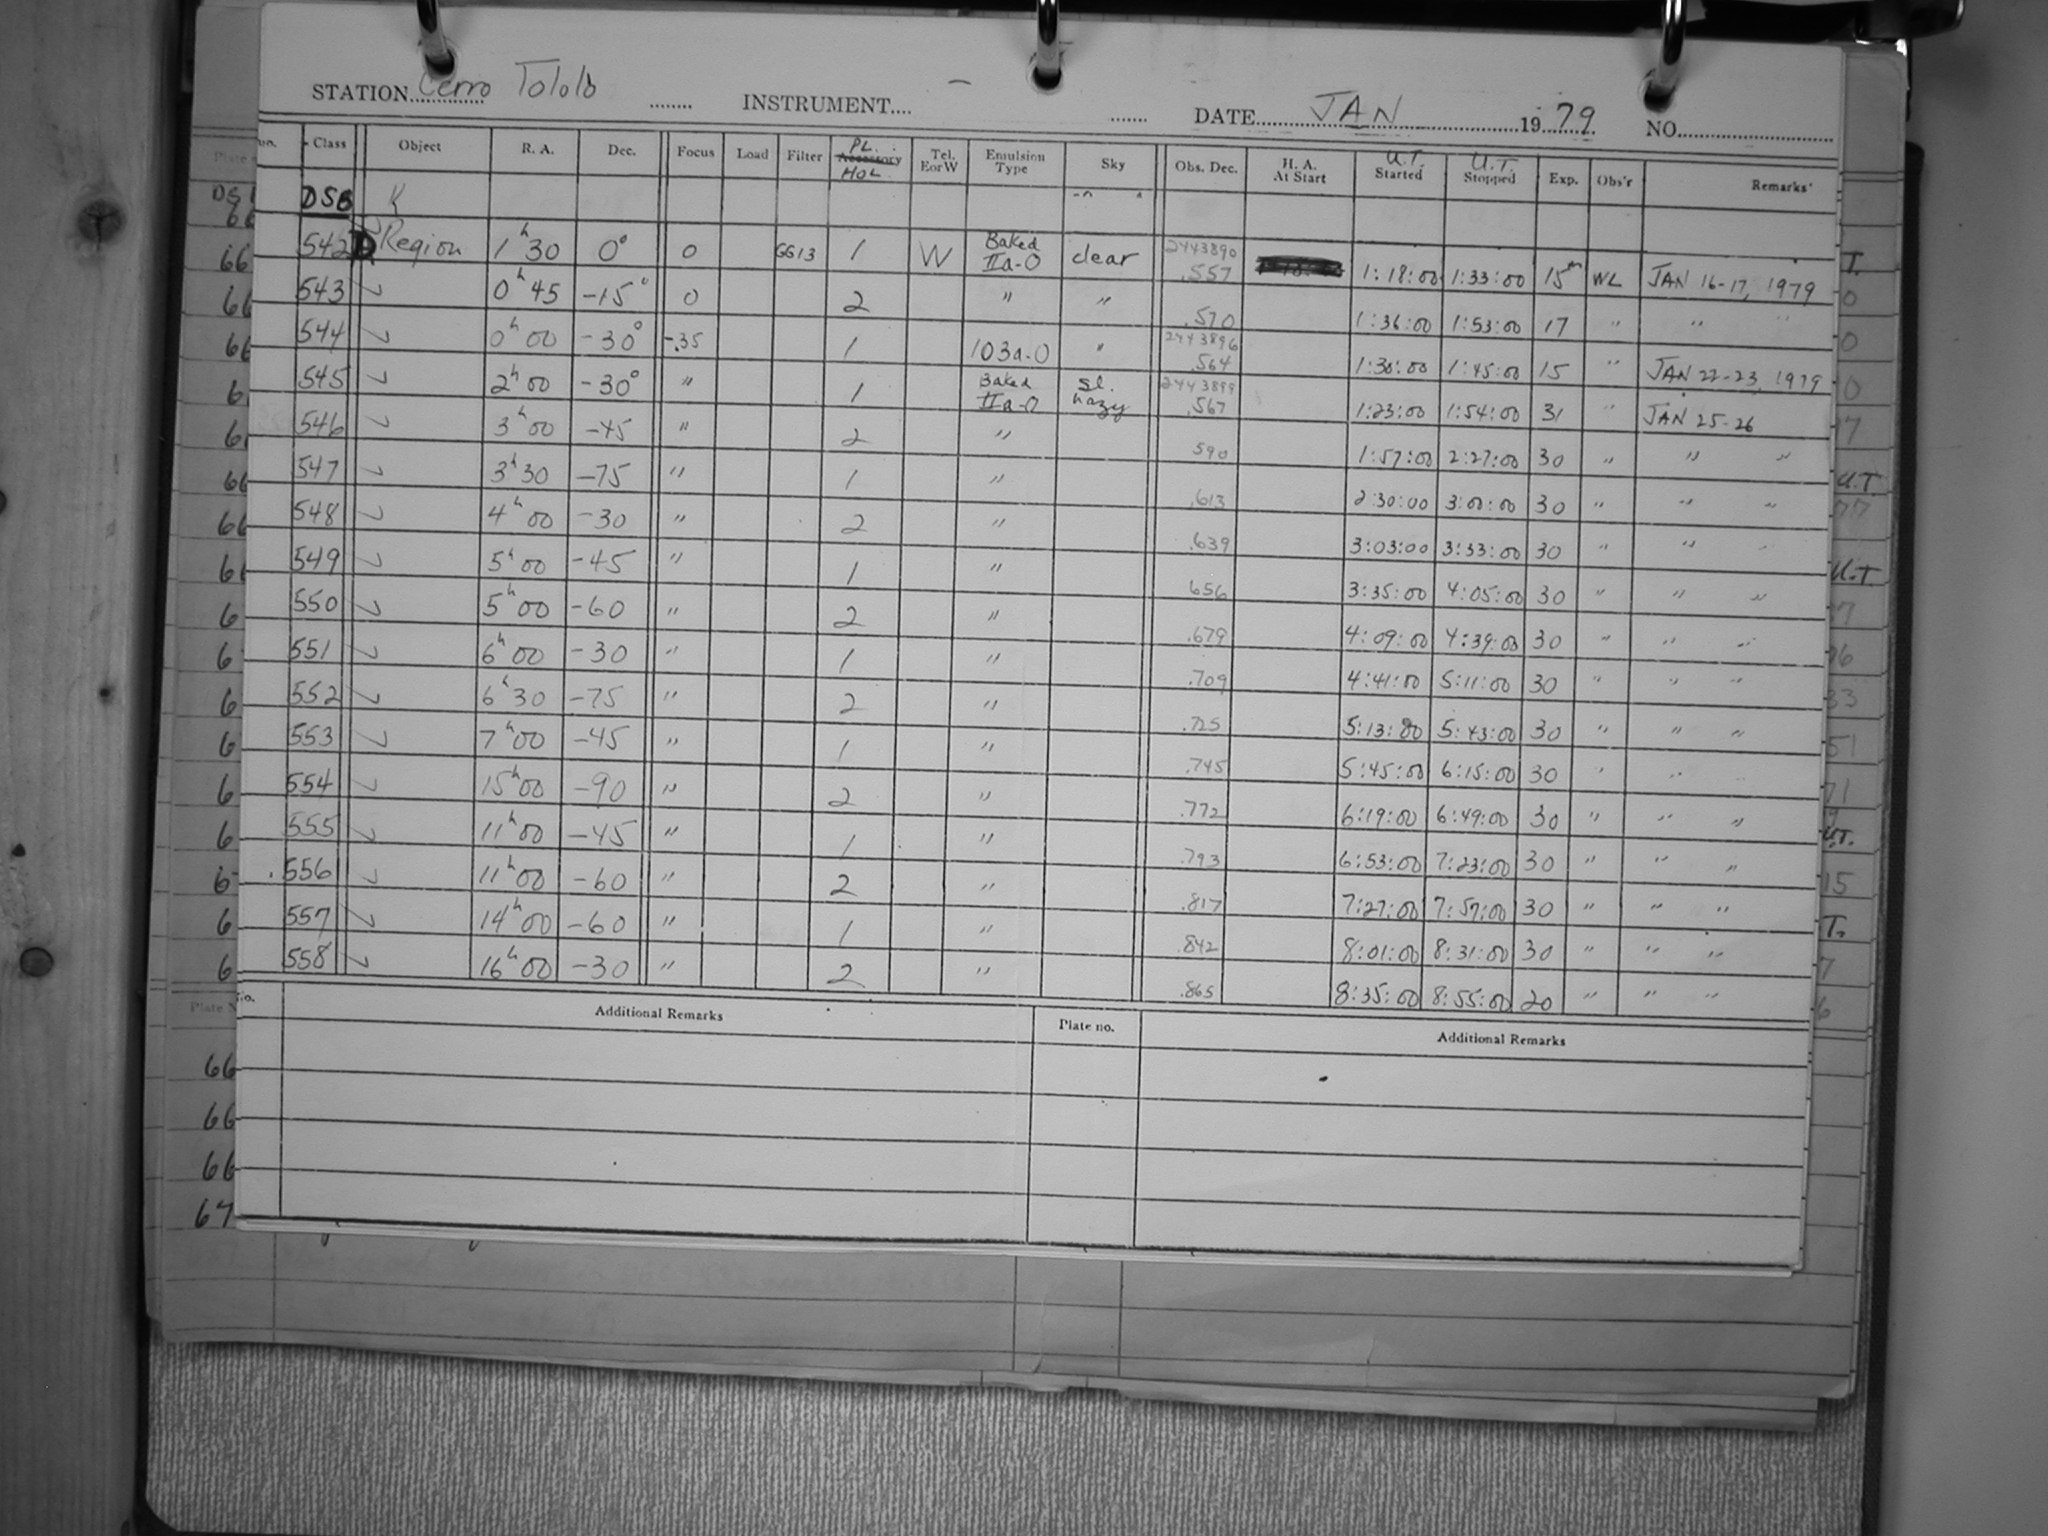 STATION Cerro Tololo INSTRUMENT.... — DATE JAN 1979 NO.
no. Class Object R. A. Dec. Focus Load Filter PL. Accessory HOL Tel. EorW Emulsion Type Sky Obs. Dec. H. A. At Start U.T. Started U.T. Stopped Exp. Obs'r Remarks
DSB
542 Region 1h 30 0° 0 GG13 1 W Baked IIa-O clear 2443890 .557 1:18:00 1:33:00 15m WL JAN 16-17, 1979
543 ✓ 0h 45 -15° 0 2 " " .570 1:36:00 1:53:00 17 " " "
544 ✓ 0h 00 -30° -.35 1 103a-O " 2443896 .564 1:30:00 1:45:00 15 " JAN 22-23, 1979
545 ✓ 2h 00 -30° " 1 Baked IIa-O sl. hazy 2443899 .567 1:23:00 1:54:00 31 " JAN 25-26
546 ✓ 3h 00 -45 " 2 " 590 1:57:00 2:27:00 30 " " "
547 ✓ 3h 30 -75 " 1 " .613 2:30:00 3:00:00 30 " " "
548 ✓ 4h 00 -30 " 2 " .639 3:03:00 3:33:00 30 " " "
549 ✓ 5h 00 -45 " 1 " 656 3:35:00 4:05:00 30 " " "
550 ✓ 5h 00 -60 " 2 " .679 4:09:00 4:39:00 30 " " "
551 ✓ 6h 00 -30 " 1 " .709 4:41:00 5:11:00 30 " " "
552 ✓ 6h 30 -75 " 2 " .725 5:13:00 5:43:00 30 " " "
553 ✓ 7h 00 -45 " 1 " .745 5:45:00 6:15:00 30 " " "
554 ✓ 15h 00 -90 " 2 " .772 6:19:00 6:49:00 30 " " "
555 ✓ 11h 00 -45 " 1 " .793 6:53:00 7:23:00 30 " " "
556 ✓ 11h 00 -60 " 2 " .817 7:27:00 7:57:00 30 " " "
557 ✓ 14h 00 -60 " 1 " .842 8:01:00 8:31:00 30 " " "
558 ✓ 16h 00 -30 " 2 " .865 8:35:00 8:55:00 20 " " "
Additional Remarks Plate no. Additional Remarks
66
66
66
67